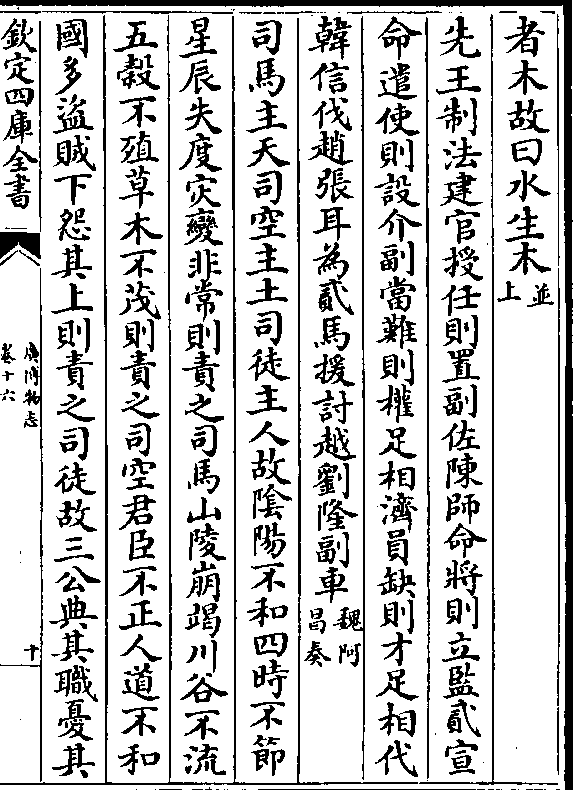 者木故曰水生木並上
先王制法建官授任則置副佐陳師命將則立監貳宣
命遣使則設介副當難則權足相濟員缺則才足相代
韓信伐趙張耳為貳馬援討越劉隆副車魏阿昌奏
司馬主天司空主土司徒主人故陰陽不和四時不節
星辰失度灾變非常則責之司馬山陵崩竭川谷不流
五穀不殖草木不茂則責之司空君臣不正人道不和
國多盜賊下怨其上則責之司徒故三公典其職憂其
欽定四庫全書
廣博物志
卷十六
十